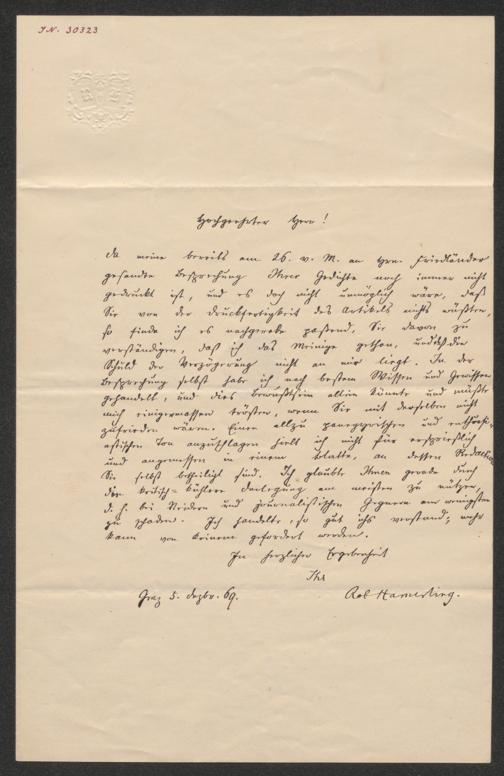 I.N. 30323
Hochgeehrter Herr!
Da meine bereits am 26. v. M. an Hrn. Friedländer
gesandte Besprechung Ihrer Gedichte noch immer nicht
gedruckt ist, und es doch nicht unmöglich wäre, daß
Sie von der Druckfertigkeit des Artikels nichts wüßten,
so finde ich es nachgerade passend, Sie davon zu
verständigen, daß ich das Meinige gethan, und daß die
Schuld der Verzögerung nicht an mir liegt. In der
Besprechung selbst habe ich nach bestem Wissen und Gewissen
gehandelt, und dies Bewußtsein allein könnte und müßte
mich einigermassen trösten, wenn Sie mit derselben nicht
zufrieden wären. Einen allzu panegyrischen und enthusi-
astischen Ton anzuschlagen hielt ich nicht für ersprießlich
und angemessen in einem Blatte, an dessen Redaction
Sie selbst betheiligt sind. Ich glaubte Ihnen gerade durch
die kritisch-kühlere Darlegung am meisten zu nützen,
d. h. bei Neidern und journalistischen Gegnern am wenigsten
zu schaden. Ich handelte, so gut ich's verstand; mehr
kann von keinem gefordert werden.
In herzlicher Ergebenheit
Ihr
Graz 5. Dezbr. 69.
Rob Hamerling.